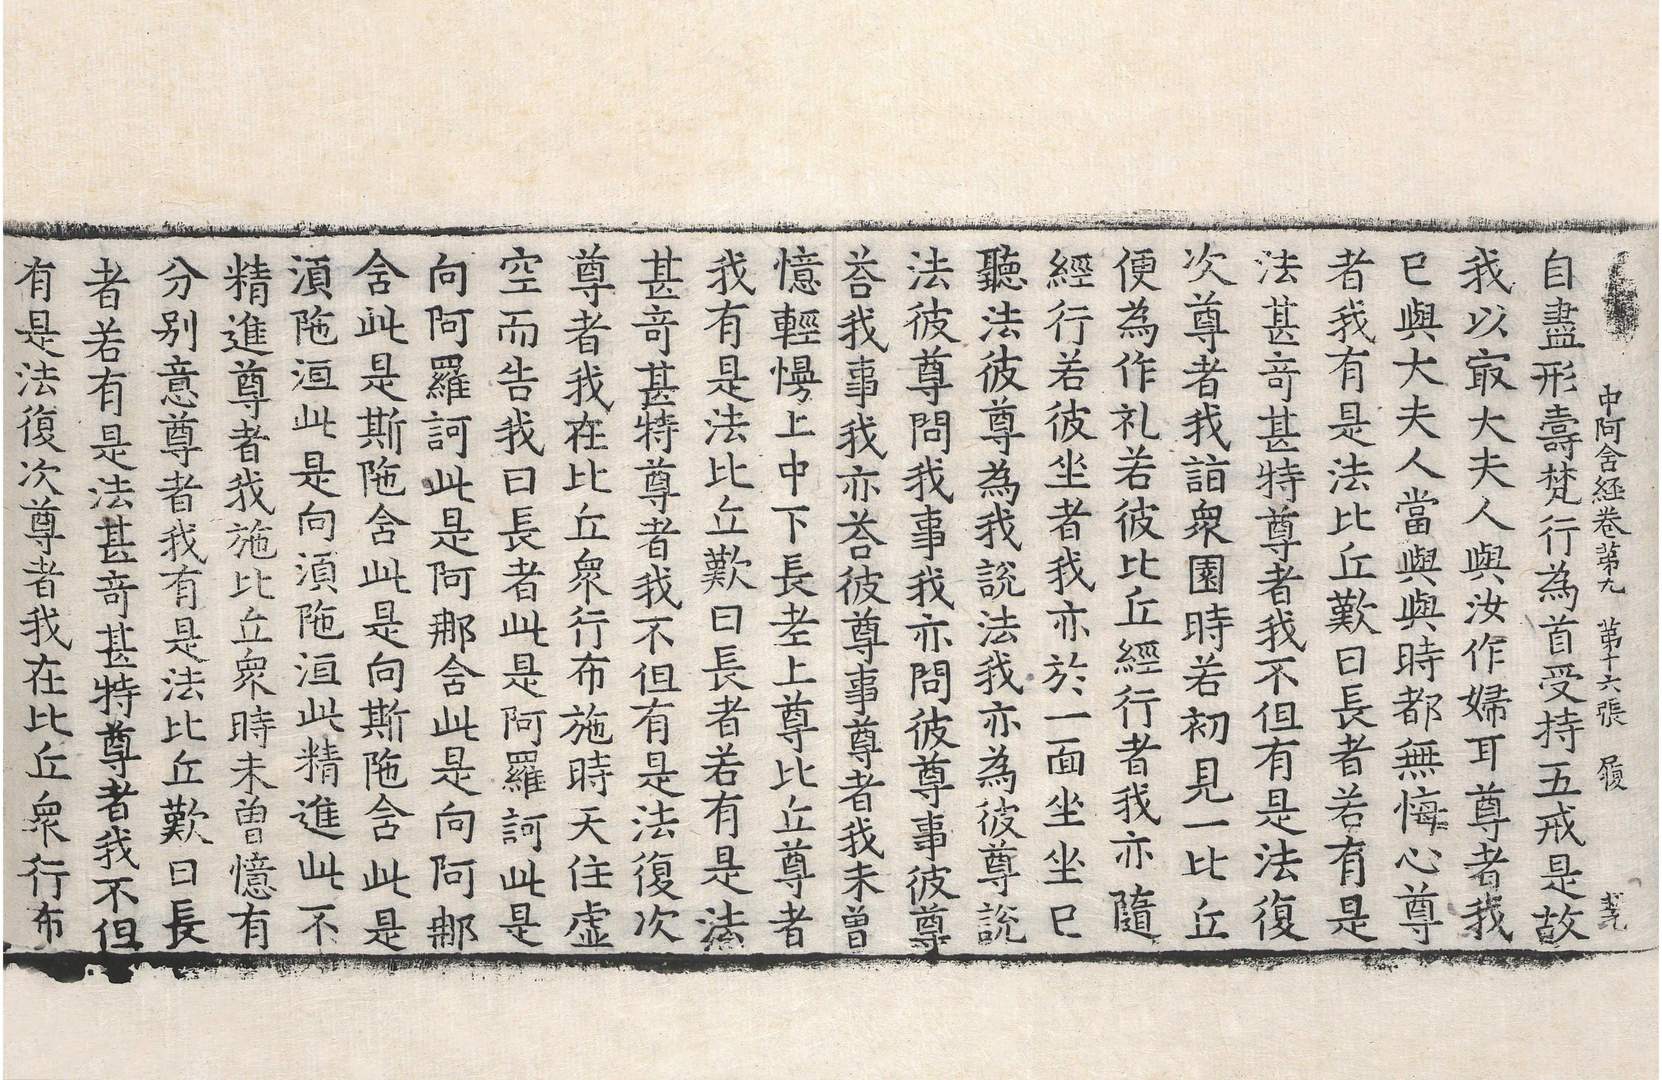 中阿含経卷苐九　苐十六張　履
自盡形壽梵行為首受持五戒是故
我以㝡大夫人與汝作婦耳尊者我
已與大夫人當與與時都無悔心尊
者我有是法比丘歎曰長者若有是
法甚竒甚特尊者我不但有是法復
次尊者我詣衆園時若初見一比丘
便為作礼若彼比丘經行者我亦隨
經行若彼坐者我亦於一面坐坐已
聽法彼尊為我說法我亦為彼尊說
法彼尊問我事我亦問彼尊事彼尊
荅我事我亦荅彼尊事尊者我未曽
憶輕慢上中下長老上尊比丘尊者
我有是法比丘歎曰長者若有是法
甚竒甚特尊者我不但有是法復次
尊者我在比丘衆行布施時天住虚
空而告我曰長者此是阿羅訶此是
向阿羅訶此是阿那舍此是向阿那
舍此是斯陁含此是向斯陁含此是
湏陁洹此是向湏陁洹此精進此不
精進尊者我施比丘衆時未曽憶有
分别意尊者我有是法比丘歎曰長
者若有是法甚竒甚特尊者我不但
有是法復次尊者我在比丘衆行布